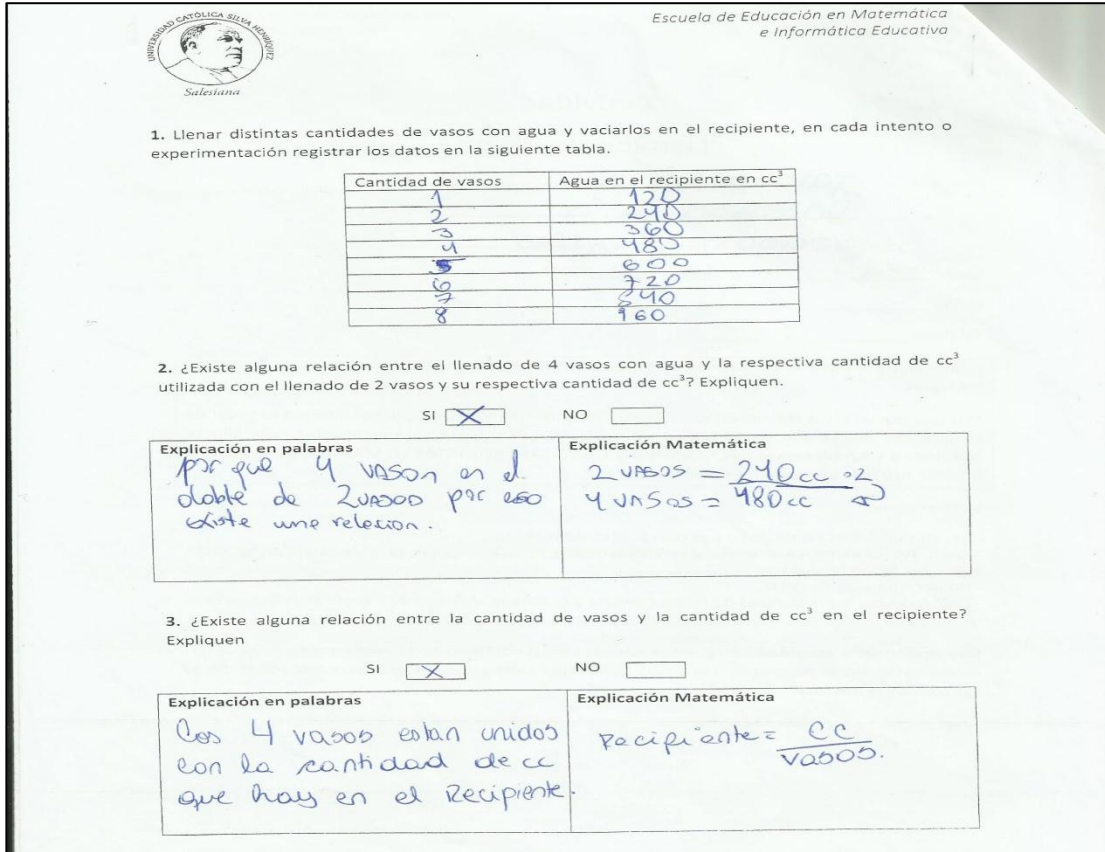 UNIVERSIDAD CATÓLICA SILVA HENRÍQUEZ
Salesiana
Escuela de Educación en Matemática
e Informática Educativa
1. Llenar distintas cantidades de vasos con agua y vaciarlos en el recipiente, en cada intento o
experimentación registrar los datos en la siguiente tabla.
Cantidad de vasos Agua en el recipiente en cc³
1 120
2 240
3 360
4 480
5 600
6 720
7 840
8 960
2. ¿Existe alguna relación entre el llenado de 4 vasos con agua y la respectiva cantidad de cc³
utilizada con el llenado de 2 vasos y su respectiva cantidad de cc³? Expliquen.
SI X NO
Explicación en palabras
por que 4 vason en el
doble de 2 vasos por eso
existe une relesion.
Explicación Matemática
2 vasos = 240cc ·2
4 vasos = 480cc
3. ¿Existe alguna relación entre la cantidad de vasos y la cantidad de cc³ en el recipiente?
Expliquen
SI X NO
Explicación en palabras
Los 4 vasos estan unidos
con la cantidad de cc
que hay en el Recipiente.
Explicación Matemática
Recipiente = cc
vasos.